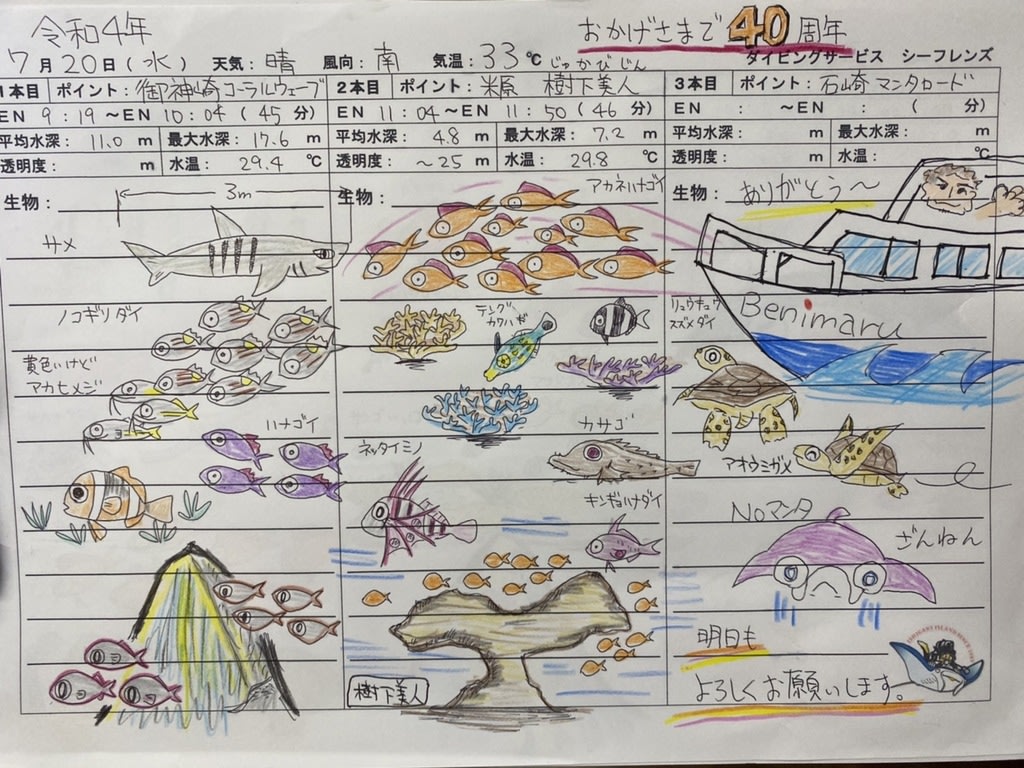 令和4年
おかげさまで40周年
7月20日(水) 天気:晴 風向:南 気温:33℃
ダイビングサービス シーフレンズ
1本目 ポイント:御神崎コーラルウェーブ
EN 9:19 ~EN 10:04 (45 分)
平均水深: 11.0 m 最大水深: 17.6 m
透明度: m 水温: 29.4 ℃
生物:
3m
サメ
ノコギリダイ
黄色いけど
アカヒメジ
ハナゴイ
じゅかびじん
2本目 ポイント:米原 樹下美人
EN 11:04~EN 11:50 (46 分)
平均水深: 4.8 m 最大水深: 7.2 m
透明度: ~25 m 水温: 29.8 ℃
生物:
アカネハナゴイ
テングカワハギ
リュウキュウ
スズメダイ
カサゴ
ネッタイミノ
キンギョハナダイ
樹下美人
3本目 ポイント:石崎マンタロード
EN : ~EN : ( 分)
平均水深: m 最大水深: m
透明度: m 水温: ℃
生物:
ありがとう~
Benimaru
アオウミガメ
Noマンタ
ざんねん
明日も
よろしくお願いします。